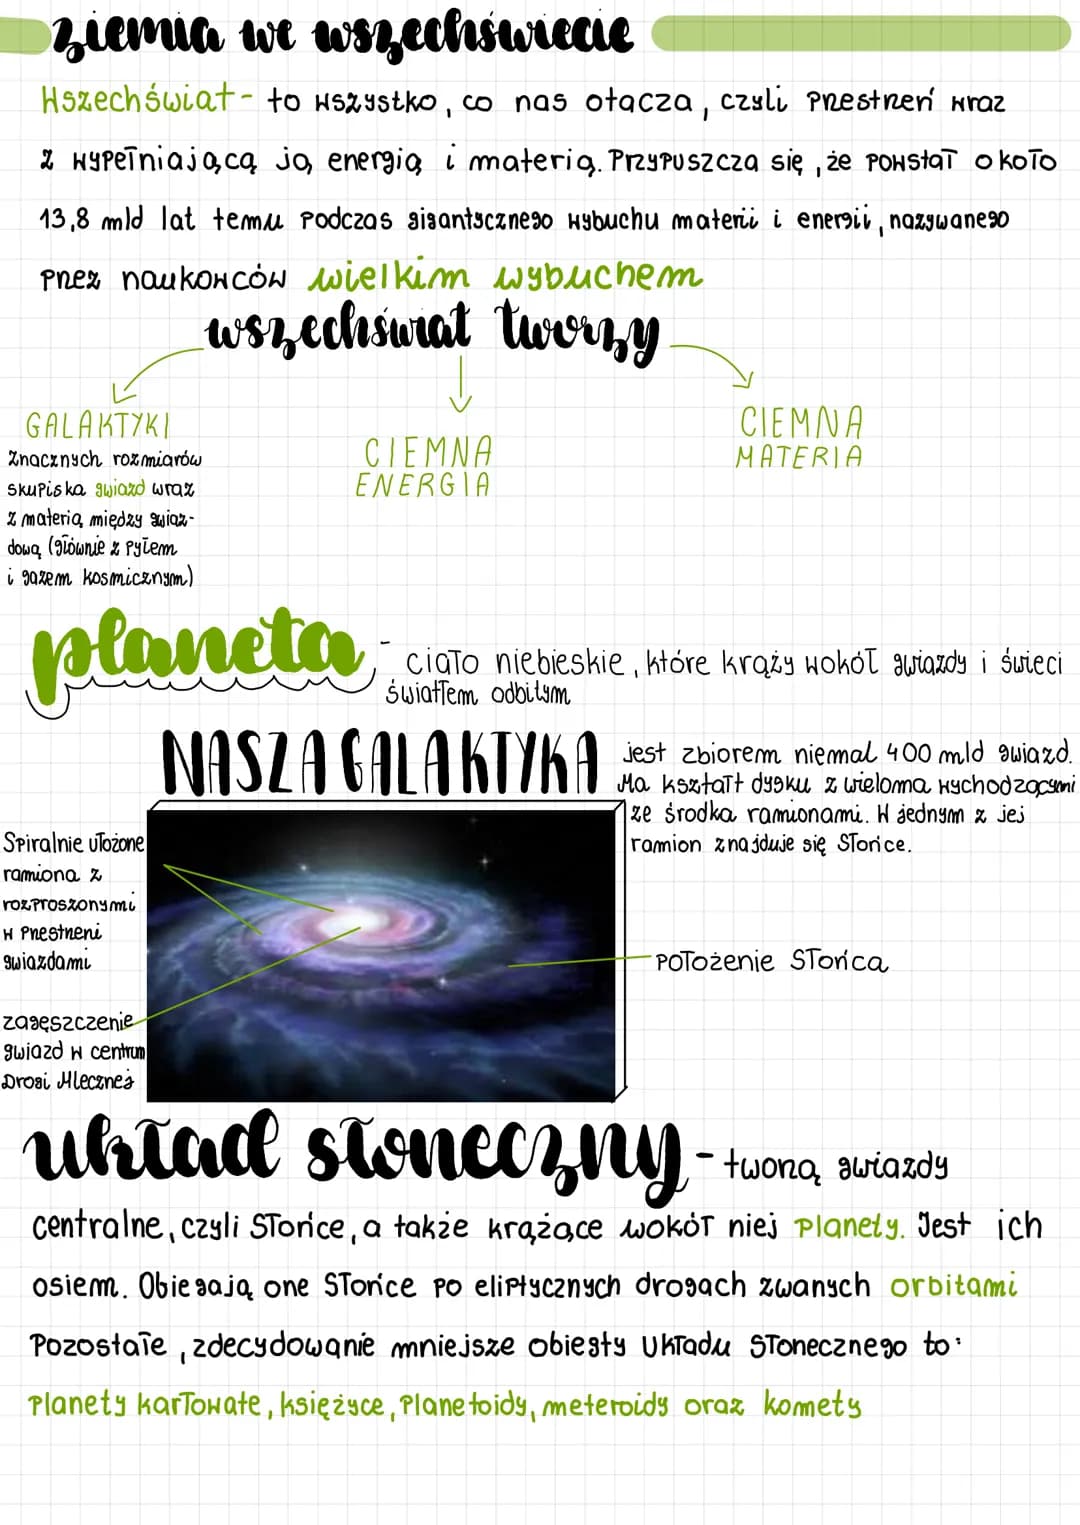 ziemia we wszechświecie
Wszechświat - to wszystko, co nas otacza, czyli przestrzeń wraz
z wypełniającą ją energią i materią. Przypuszcza się, że powstał około
13,8 mld lat temu podczas gigantycznego wybuchu materii i energii, nazywanego
przez naukowców wielkim wybuchem
wszechświat tworzy
GALAKTYKI
Znacznych rozmiarów
skupiska gwiazd wraz
z materią między gwiaz-
dową (głównie z pyłem
i gazem kosmicznym)
CIEMNA
ENERGIA
CIEMNA
MATERIA
planeta - ciało niebieskie, które krąży wokół gwiazdy i świeci
światłem odbitym
NASZA GALAKTYKA jest zbiorem niemal 400 mld gwiazd.
Ma kształt dysku z wieloma wychodzącymi
ze środka ramionami. W jednym z jej
ramion znajduje się Słońce.
Spiralnie ułożone
ramiona z
rozproszonymi
w przestrzeni
gwiazdami
zagęszczenie
gwiazd w centrum
Drogi Mlecznej
Położenie Słońca
układ słoneczny - tworzą gwiazdy
centralne, czyli Słońce, a także krążące wokół niej planety. Jest ich
osiem. Obiegają one Słońce po eliptycznych drogach zwanych orbitami
Pozostałe, zdecydowanie mniejsze obiegty Układu Słonecznego to:
planety karłowate, księżyce, planetoidy, meteroidy oraz komety